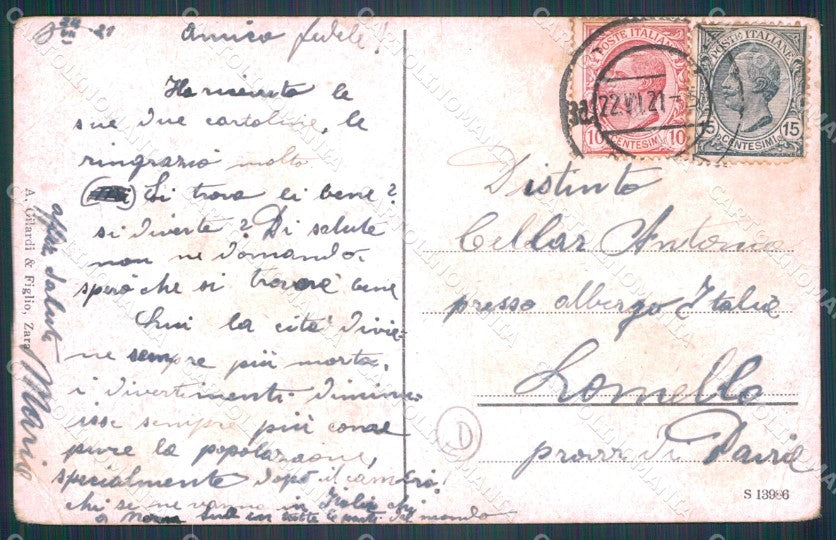 22 VII 21
Amico fedele!
Ho ricevuto le
sue due cartoline, le
ringrazio molto
Si trova ei bene?
si diverte? Di salute
non ne domando,
spero che si trovare bene
Qui la città divie-
ne sempre più morta,
i divertimenti diminu
isse sempre più come
pure la popolazione,
specialmente dopo il cambio,
chi se ne vanno in Italia chi
a in tutte le parti del mondo
affett. saluti
Mario
A. Gilardi & Figlio, Zara
POSTE ITALIANE
10 CENTESIMI 10
POSTE ITALIANE
15 CENTESIMI 15
22.VII.21
Distinto
Cellar Antonio
presso albergo Italia
Lomello
prov. di Pavia
D
S 13996
CARTOLINOMANIA